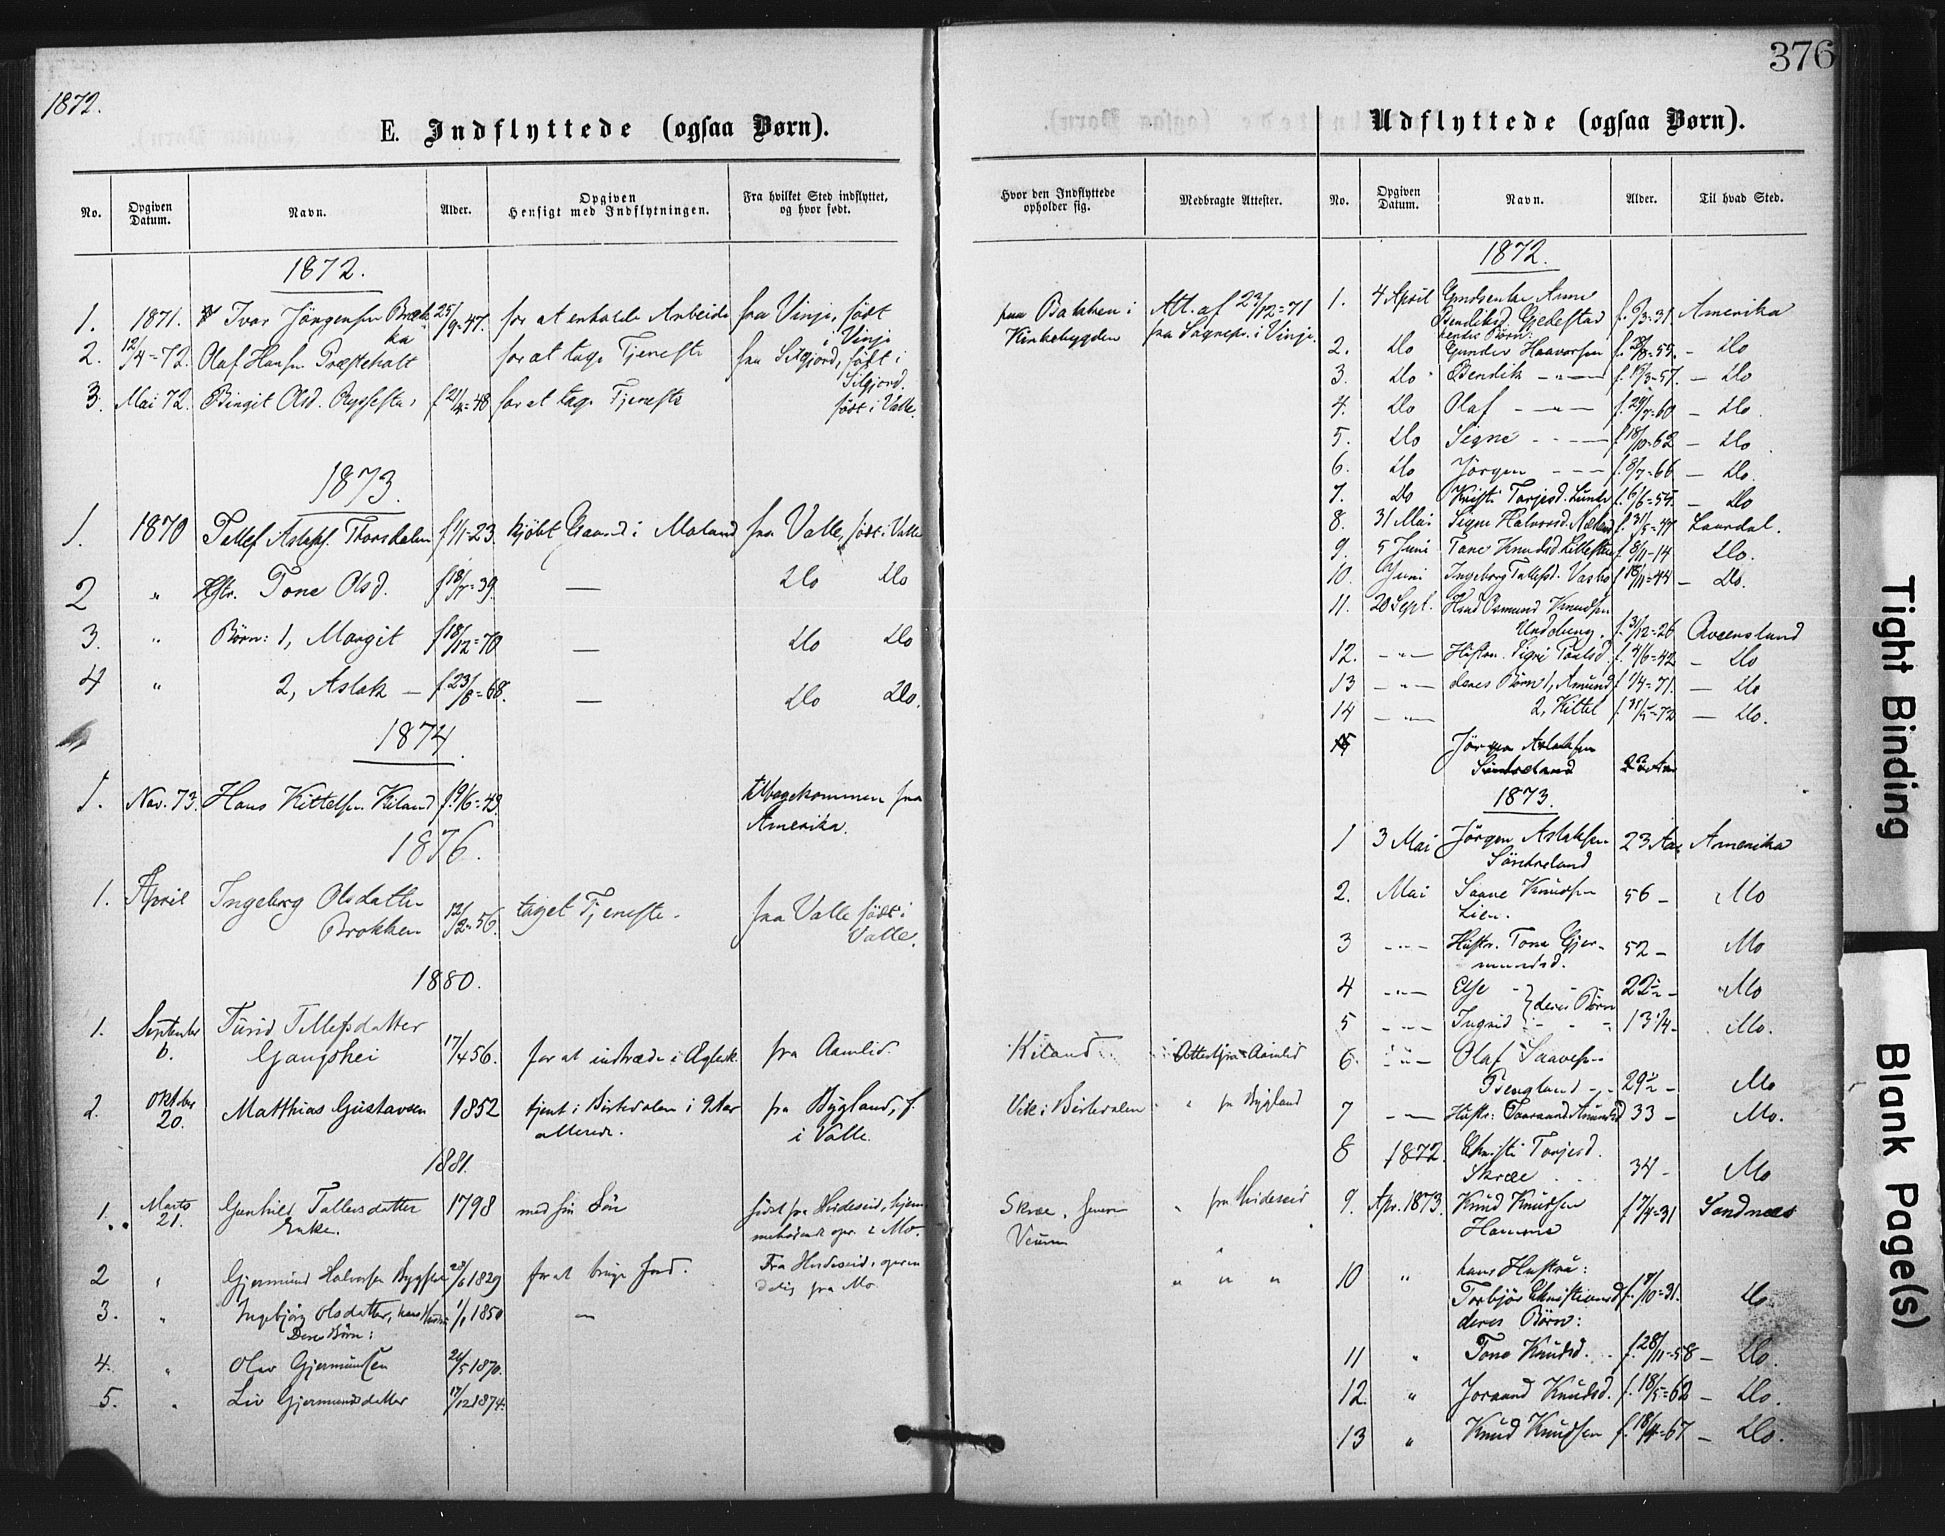 1872.
376
E. Indflyttede (ogsaa Børn).
No. Opgiven Datum. Navn. Alder. Opgiven Hensigt med Indflytningen. Fra hvilket Sted indflyttet, og hvor født. Hvor den Indflyttede opholder sig. Medbragte Attester.
1872.
1. 1871. Ivar Jörgensen 25/9=47. for at erholde Arbeide fra Vinje, født i Vinje fra Bakken i Kirkebygden Att. af 23/12=71 fra Sognepr. i Vinje.
2. 12/4=72. Olaf Hansen for at tage Tjeneste fra Silgjord, født i Silgjord.
3. Mai 72. Birgit Olsd. f 21/4=48 for at tage Tjeneste født i Valle.
1873.
1. 1870 Tellef Aslaks. f 1/1-23. kjöbt Gaard i Moland fra Valle, født i Valle
2 " Hstr. Tone Olsd. f 18/7=39. — Do Do
3. " Børn: 1, Margit f 18/12=70 — Do Do
4 " 2, Aslak — f 23/8=68. — Do Do.
1874.
1. Nov. 73. Hans Kittelsen Kiland f. 9/6=49. tilbagekommen fra Amerika.
1876.
1. April Ingeborg Olsdatter Brokken 12/2=56. taget Tjeneste. fra Valle født i Valle.
1880.
1. September 6. Turid Tellefsdatter Gaugshei 17/4 56. for at indtræde i Ægtesk. fra Aamlid. Kiland Attest fra Aamlid
2. Oktober 20. Matthias Gustavsen 1852 tjent i Birkedalen i 9 Aar allerede. fra Bygland, f. i Valle. Vik i Birkedalen " fra Bygland
1881.
1. Marts 21. Gunhild Tallefsdatter Enke. 1798 med sin Sön født fra Hvideseid, Skræe, Veum " fra Hvideseid
2 " Gjermund Halvorsen 28/6 1829 for at bruge Jord. Fra Hvideseid, fra Mo. " " "
3. " Ingebjörg Olsdatter, hans Hustru 1/1 1850 —
Deres Børn:
4. " Olav Gjermundsen 26/5 1870.
5. " Liv Gjermundsdatter 17/12 1874.
Udflyttede (ogsaa Børn).
No. Opgiven Datum. Navn. Alder. Til hvad Sted.
1872.
1. 4 April Anne Bendiksd. f. 6/3=31. Amerika
hendes Börn:
2. Do Gunder Haavorsen 55. — Do
3. Do Bendik — " — 57. — Do
4. Do Olaf — " — f. 29/7=60 — Do.
5. Do Signe - - - - f 18/10=62 — Do
6. Do Jörgen - - - f. 8/7=66 — Do.
7. Do Kristi Tarjesd. Lunde f. 6/6=55. — Do
8. 31 Mai Signe Halvorsd. f. 31/5=47. Laurdal.
9. 5 Juni Tone Knudsd. f. 8/11-14 Do.
10. Juni Ingeborg Tallefsd. Vasbø =44 — Do.
11. 20 Sept. Osmund Knudsen f. 3/12=26 Qveensland
12. — " — Hustru. Sigri f. 4/6=42 — Do
13 — " — deres Børn 1, Amund f 1/4=71. — Do
14 — " — 2, Kittel =72 — Do.
15 Jörgen Aslaksen Söndreland 23 Aar
1873.
1 3 Mai Jörgen Aslaksen Söndreland 23 Aar Amerika
2. Mai Saave Knudsen Lien. 56 — Mo
3 — " — Hustr. Tone Gjermundsd. 52 — Mo
4 — " — Else - } deres Børn 22½ — Mo
5 — " — Ingrid 13¼ — Mo.
6. — " — Olaf Saavesen 29½ — Mo
7 — " — Hustr: 33 — Mo.
8 1872. Christi Tarjesd. Skræe 34 — Mo
9. Apr. 1873. Knud Knudsen f 7/4=31 Sandnæs
10 " hans Hustru: Torbjör Christiansd. =31. Do.
deres Børn:
11 " Tone Knudsd. f. 28/11=58 — Do.
12. " Joraand Knudsd. f. 18/5=62 — Do.
13 " Knud Knudsen =67 — Do.
Tight Binding
Blank Page(s)